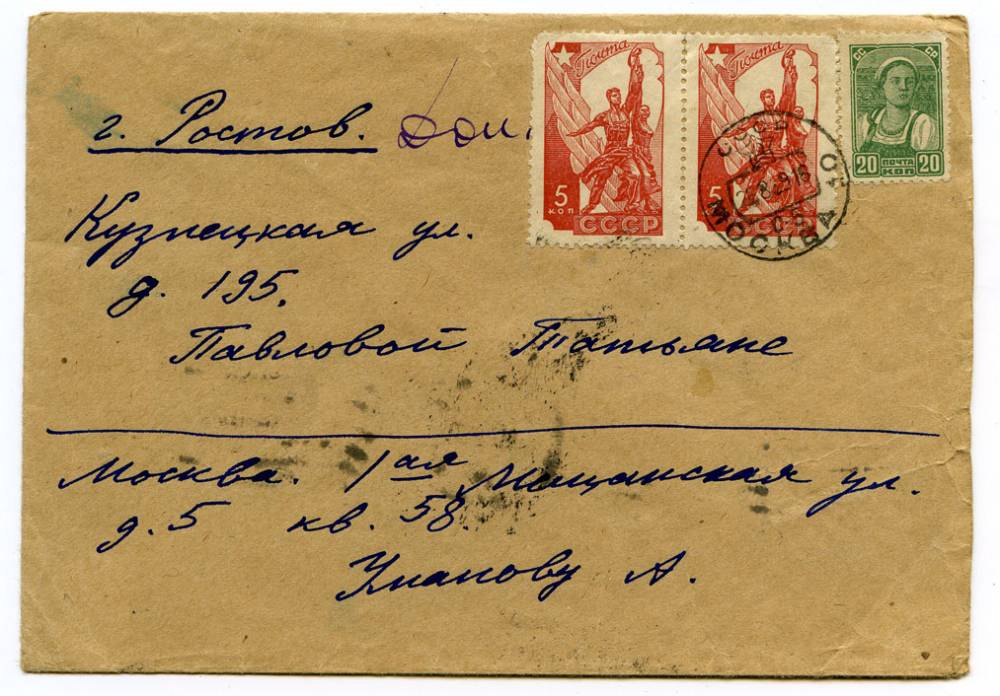 Почта
5 КОП
СССР
Почта
5
СССР
СС СР
20 ПОЧТА КОП 20
МОСКВА
г. Ростов. Дон.
Кузнецкая ул.
д. 195.
Павловой Татьяне
Москва. 1ая Мещанская ул.
д. 5 кв. 58.
А.